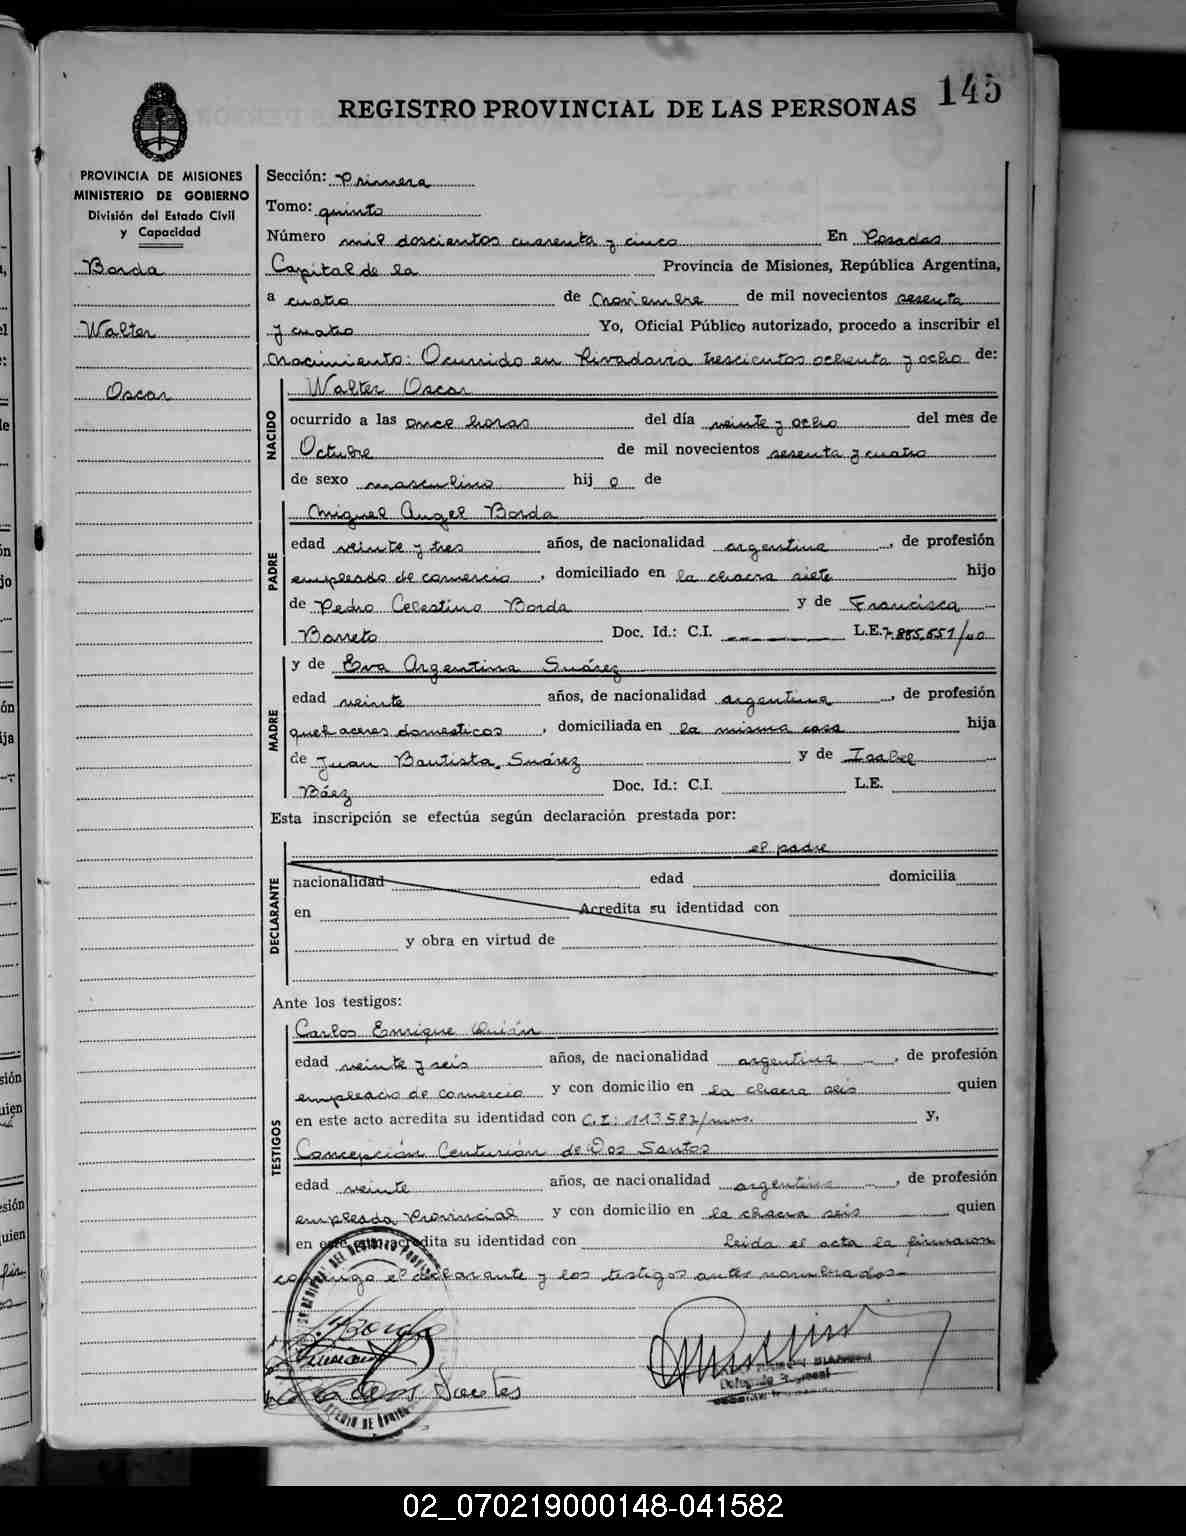 145
REGISTRO PROVINCIAL DE LAS PERSONAS
PROVINCIA DE MISIONES
MINISTERIO DE GOBIERNO
División del Estado Civil
y Capacidad
Borda
Walter
Oscar
Sección: Primera
Tomo: quinto
Número mil doscientos cuarenta y cinco En Posadas
Capital de la Provincia de Misiones, República Argentina,
a cuatro de Noviembre de mil novecientos sesenta
y cuatro Yo, Oficial Público autorizado, procedo a inscribir el
Nacimiento: Ocurrido en Rivadavia trescientos ochenta y ocho de:
NACIDO
Walter Oscar
ocurrido a las once horas del día veinte y ocho del mes de
Octubre de mil novecientos sesenta y cuatro
de sexo masculino hij o de
PADRE
Miguel Angel Borda
edad veinte y tres años, de nacionalidad argentina, de profesión
empleado de comercio, domiciliado en la chacra siete hijo
de Pedro Celestino Borda y de Francisca
Barreto Doc. Id.: C.I. L.E. 7.885.651/
MADRE
y de Eva Argentina Suárez
edad veinte años, de nacionalidad argentina, de profesión
quehaceres domesticos, domiciliada en la misma casa hija
de Juan Bautista Suárez y de Isabel
Báez Doc. Id.: C.I. L.E.
Esta inscripción se efectúa según declaración prestada por:
DECLARANTE
el padre
nacionalidad edad domicilia
en Acredita su identidad con
y obra en virtud de
Ante los testigos:
TESTIGOS
Carlos Enrique
edad veinte y seis años, de nacionalidad argentina, de profesión
empleado de comercio y con domicilio en la chacra seis quien
en este acto acredita su identidad con C.I: 113582/mns. y,
Concepción Centurión de Dos Santos
edad veinte años, de nacionalidad argentina, de profesión
empleada Provincial y con domicilio en la chacra seis quien
en este acto acredita su identidad con Leida el acta la firmaron
conmigo el declarante y los testigos antes nombrados-
Borda
dos Santos
02_070219000148-041582